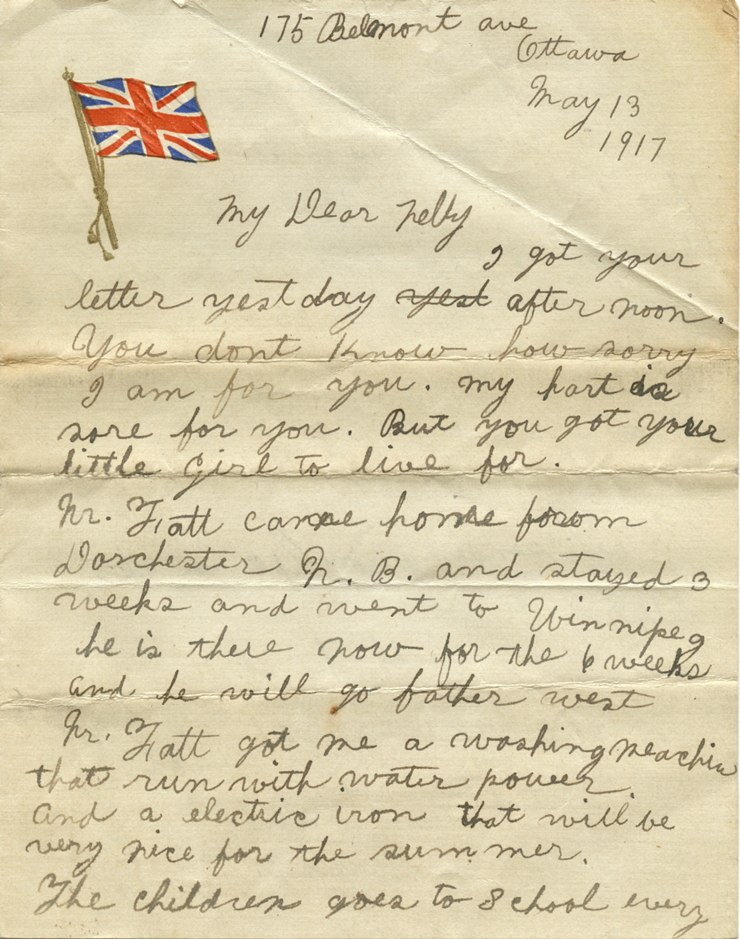 175 Belmont ave
Ottawa
May 13
1917
My Dear Nelly
I got your
letter yest day yest after noon.
You dont Know how sorry
I am for you. my hart is
sore for you. But you got your
little girl to live for.
Mr. Fatt came home from
Dorchester N. B. and stayed 3
weeks and went to Winnipeg
he is there now for the 6 weeks
and he will go father west
Mr. Fatt got me a washing meachin
that run with water power.
and a electric iron that will be
very nice for the summer.
The children goes to School every